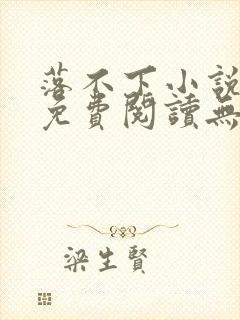 落不下小說
免費閱讀無
梁生賢